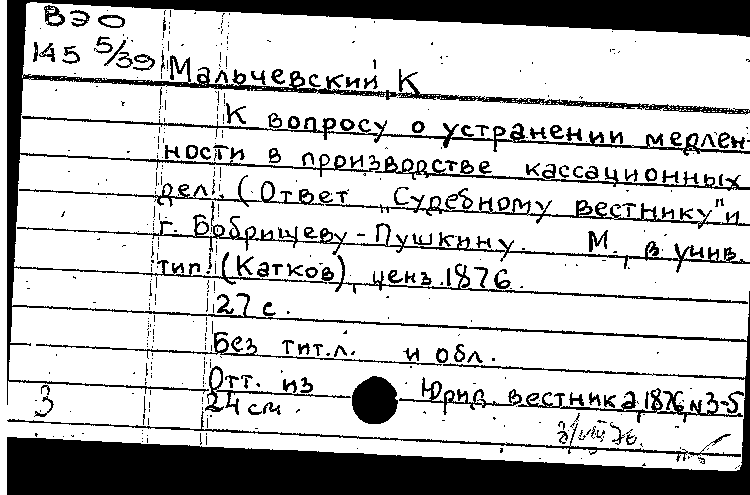 ВЭО
145 5/39
Мальчевский, К
К вопросу о устранении медлен-
ности в производстве кассационных
дел. (Ответ „Судебному вестнику" и
г. Бобрищеву-Пушкину. М., в унив.
тип. (Катков), ценз. 1876.
27 с.
Без тит. л. и обл.
Отт. из Юрид. вестника, 1876, N 3-5
24 см.
3